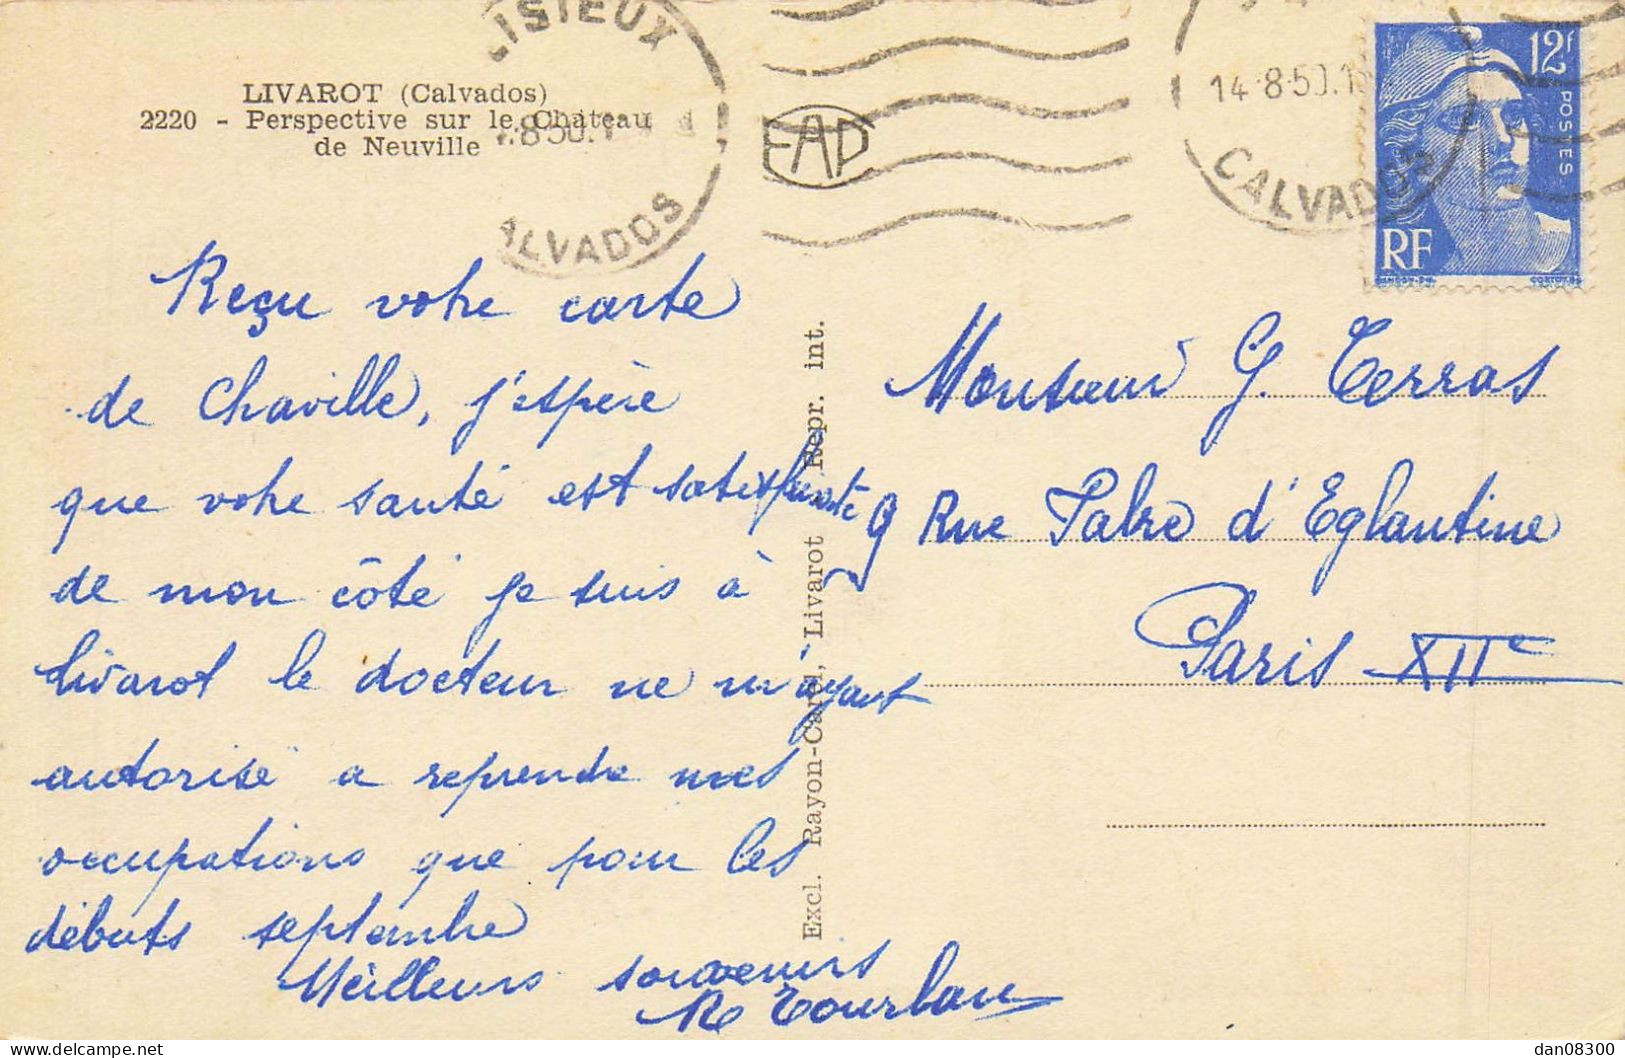 LIVAROT (Calvados)
2220 - Perspective sur le Château
de Neuville
LISIEUX
8-50
ALVADOS
EAP
14-8-50.1
CALVADOS
12f
POSTES
RF
Reçu votre carte
de Chaville, j'espère
que votre santé est satisfaisante
de mon côté je suis à
Livarot le docteur ne m'ayant
autorisé a reprendre mes
occupations que pour les
débuts septembre
Meilleurs souvenirs
Excl. Rayon-Card, Livarot - Repr. int.
Monsieur G. Terras
9 Rue Fabre d'Eglantine
Paris XIIe
dan08300